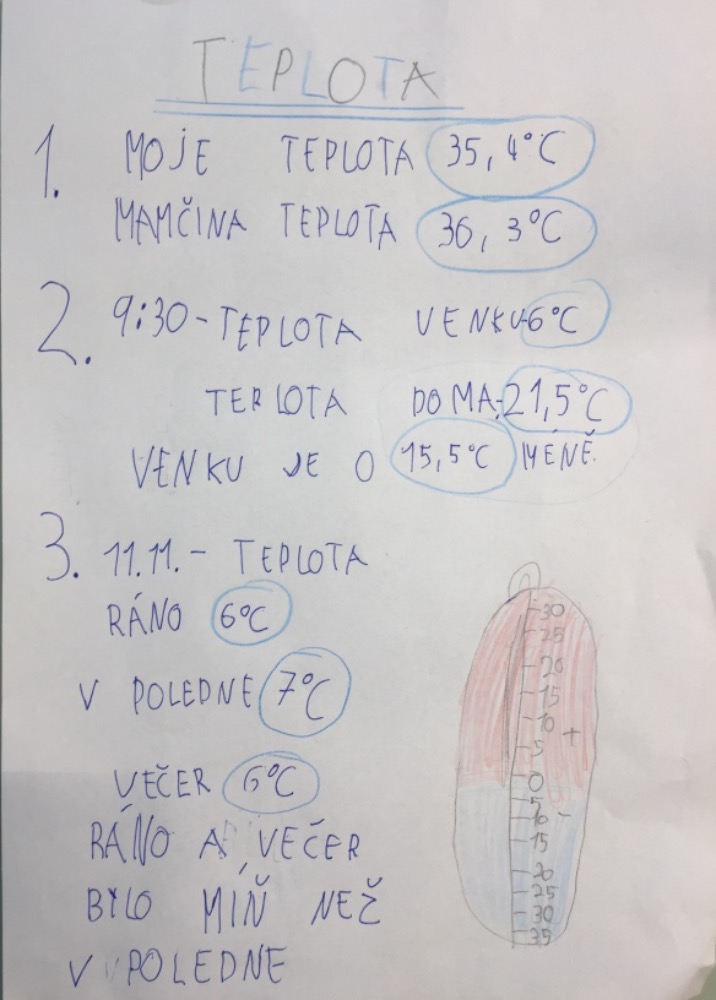 TEPLOTA
1. MOJE TEPLOTA 35,4°C
MAMČINA TEPLOTA 36,3°C
2. 9:30-TEPLOTA VENKU-6°C
TEPLOTA DOMA-21,5°C
VENKU JE O 15,5°C MÉNĚ.
3. 11.11.- TEPLOTA
RÁNO 6°C
V POLEDNE 7°C
VEČER 6°C
RÁNO A VEČER
BYLO MÍŇ NEŽ
V POLEDNE
30
25
20
15
10
+
5
0
5
10 -
15
20
25
30
35